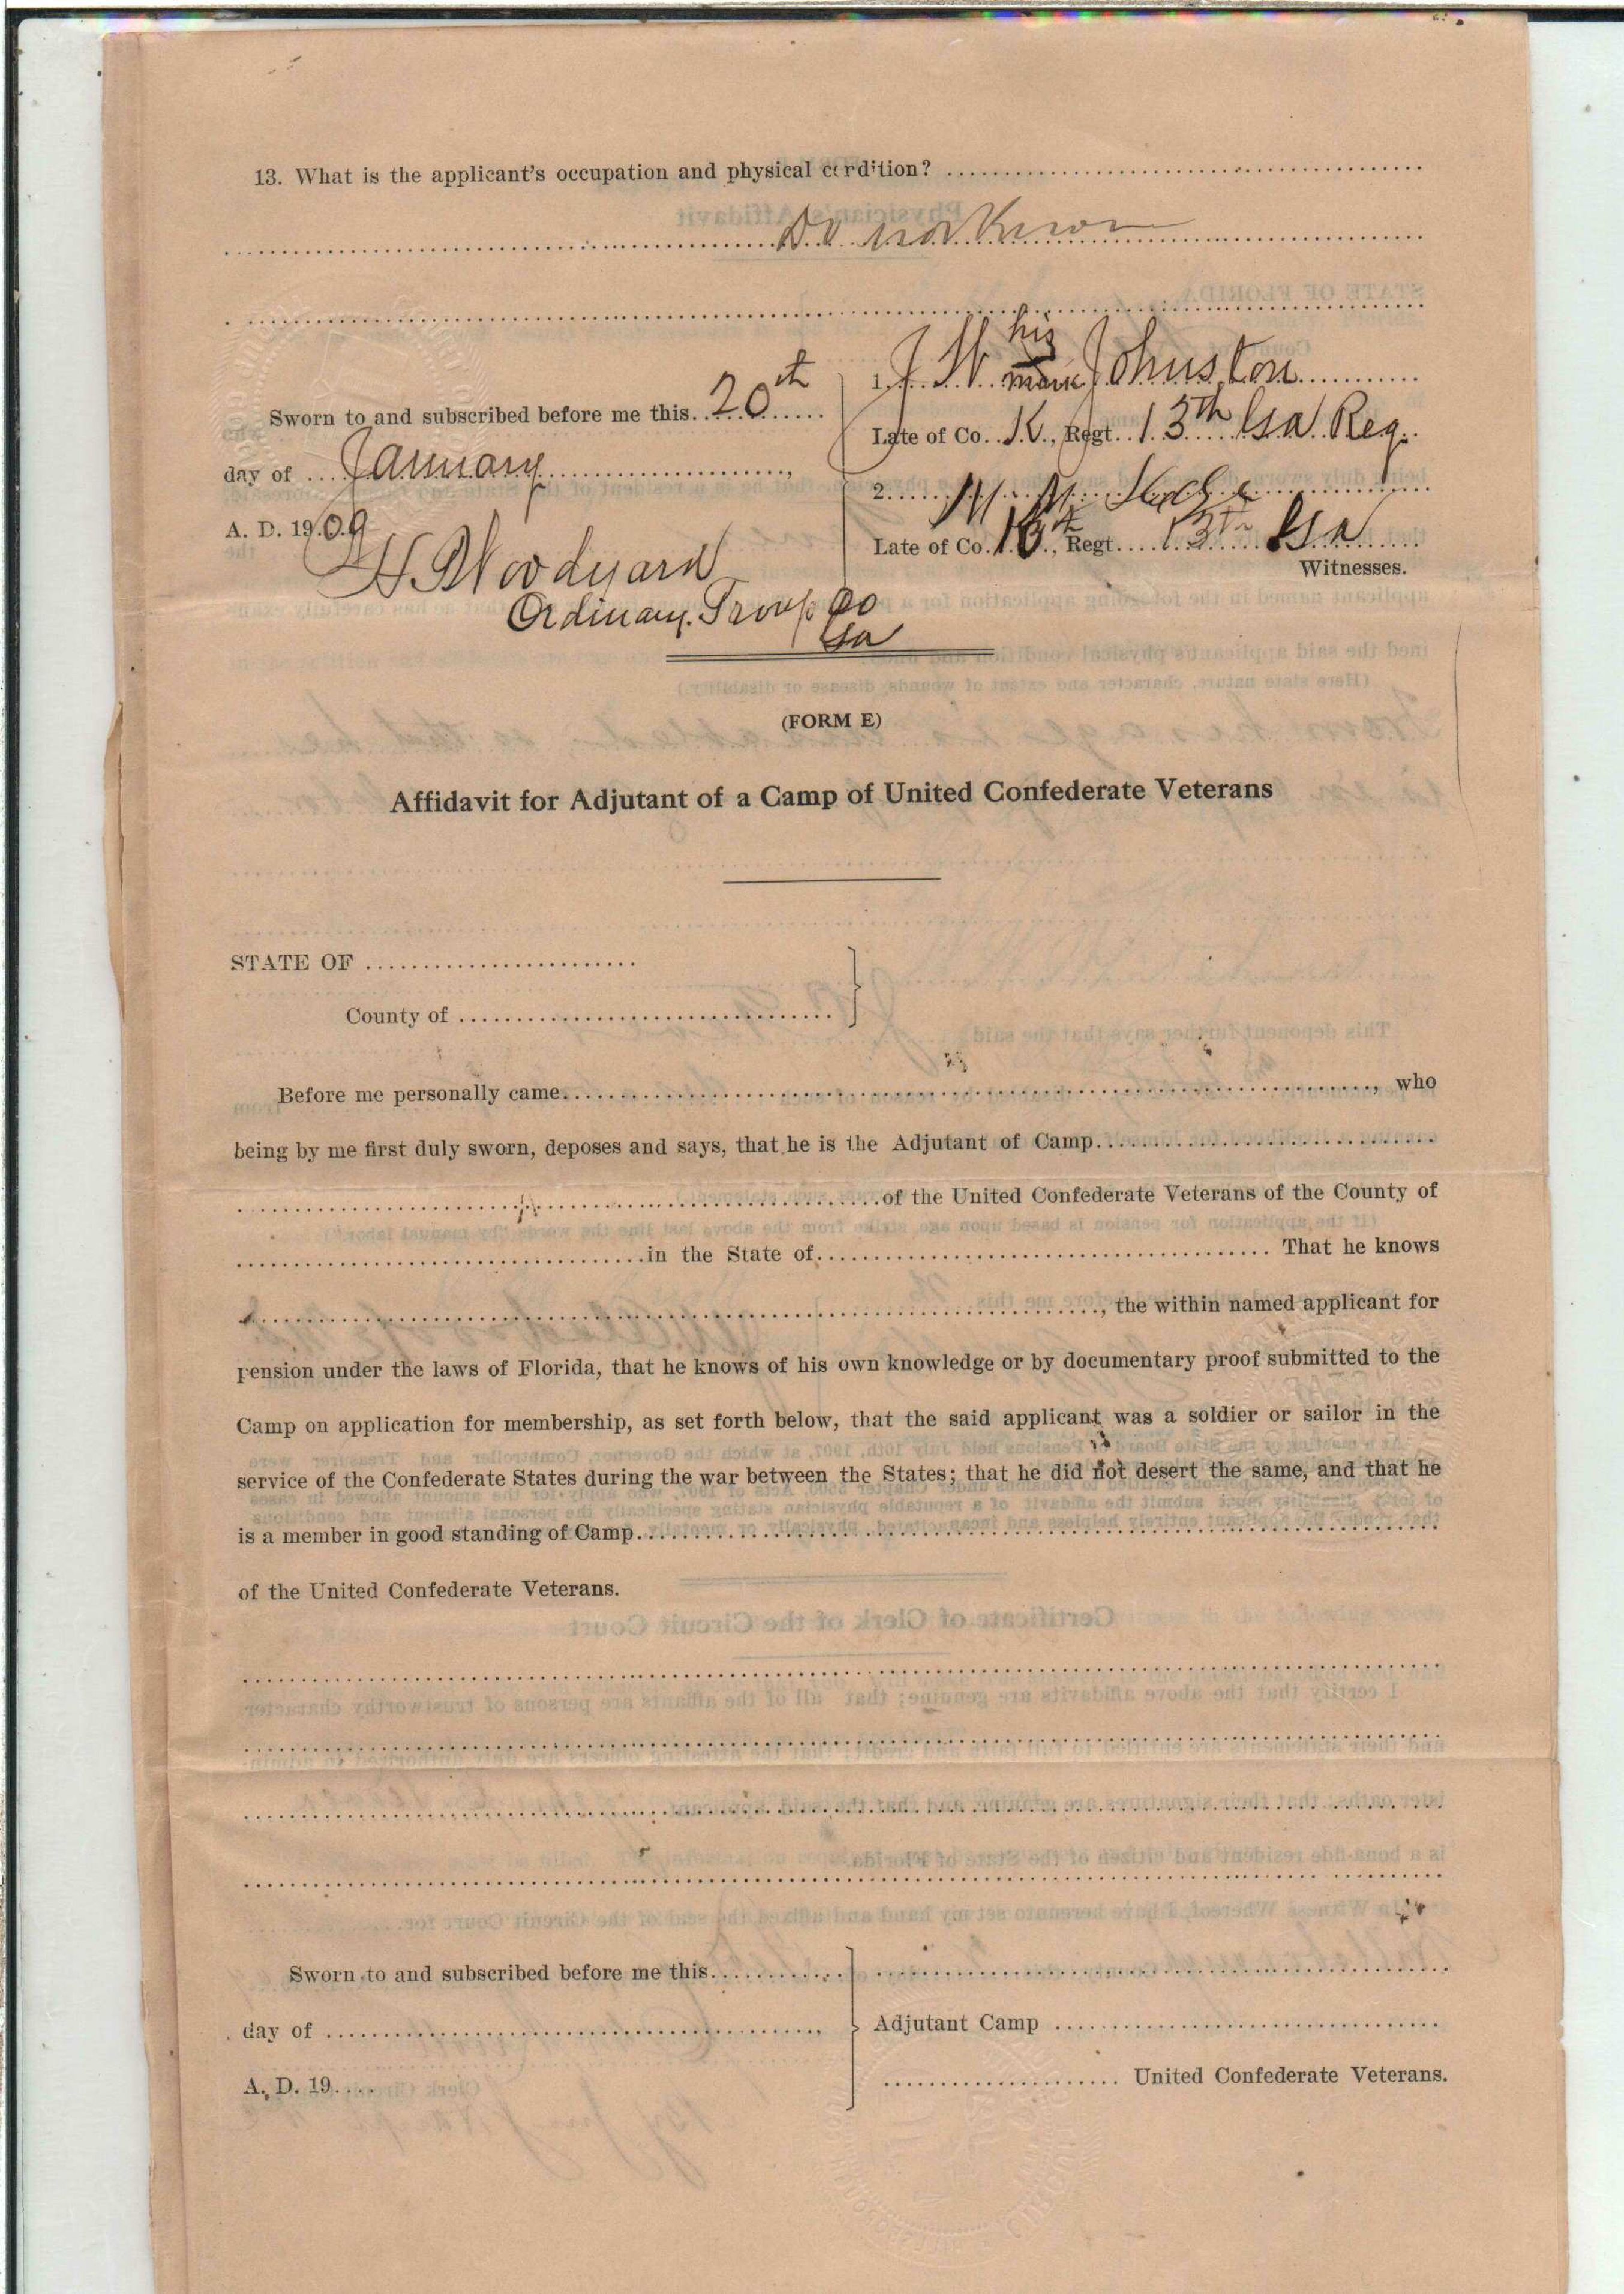 13. What is the applicant's occupation and physical condition? ........................
Do not Know
his
1. J. W. mark Johnston
Sworn to and subscribed before me this 20th
Late of Co. K., Regt. 13th Ga Reg.
day of January,
2.
A. D. 1909
Late of Co. K., Regt. 13th Ga
Witnesses.
H Woodyard
Ordinary Troup Co
Ga
(FORM E)
Affidavit for Adjutant of a Camp of United Confederate Veterans
STATE OF ........................
County of ........................
Before me personally came........................, who
being by me first duly sworn, deposes and says, that he is the Adjutant of Camp........................
........................of the United Confederate Veterans of the County of
........................in the State of........................ That he knows
........................, the within named applicant for
pension under the laws of Florida, that he knows of his own knowledge or by documentary proof submitted to the
Camp on application for membership, as set forth below, that the said applicant was a soldier or sailor in the
service of the Confederate States during the war between the States; that he did not desert the same, and that he
is a member in good standing of Camp........................
of the United Confederate Veterans.
Sworn to and subscribed before me this............
day of ........................,
Adjutant Camp ........................
A. D. 19....
........................ United Confederate Veterans.